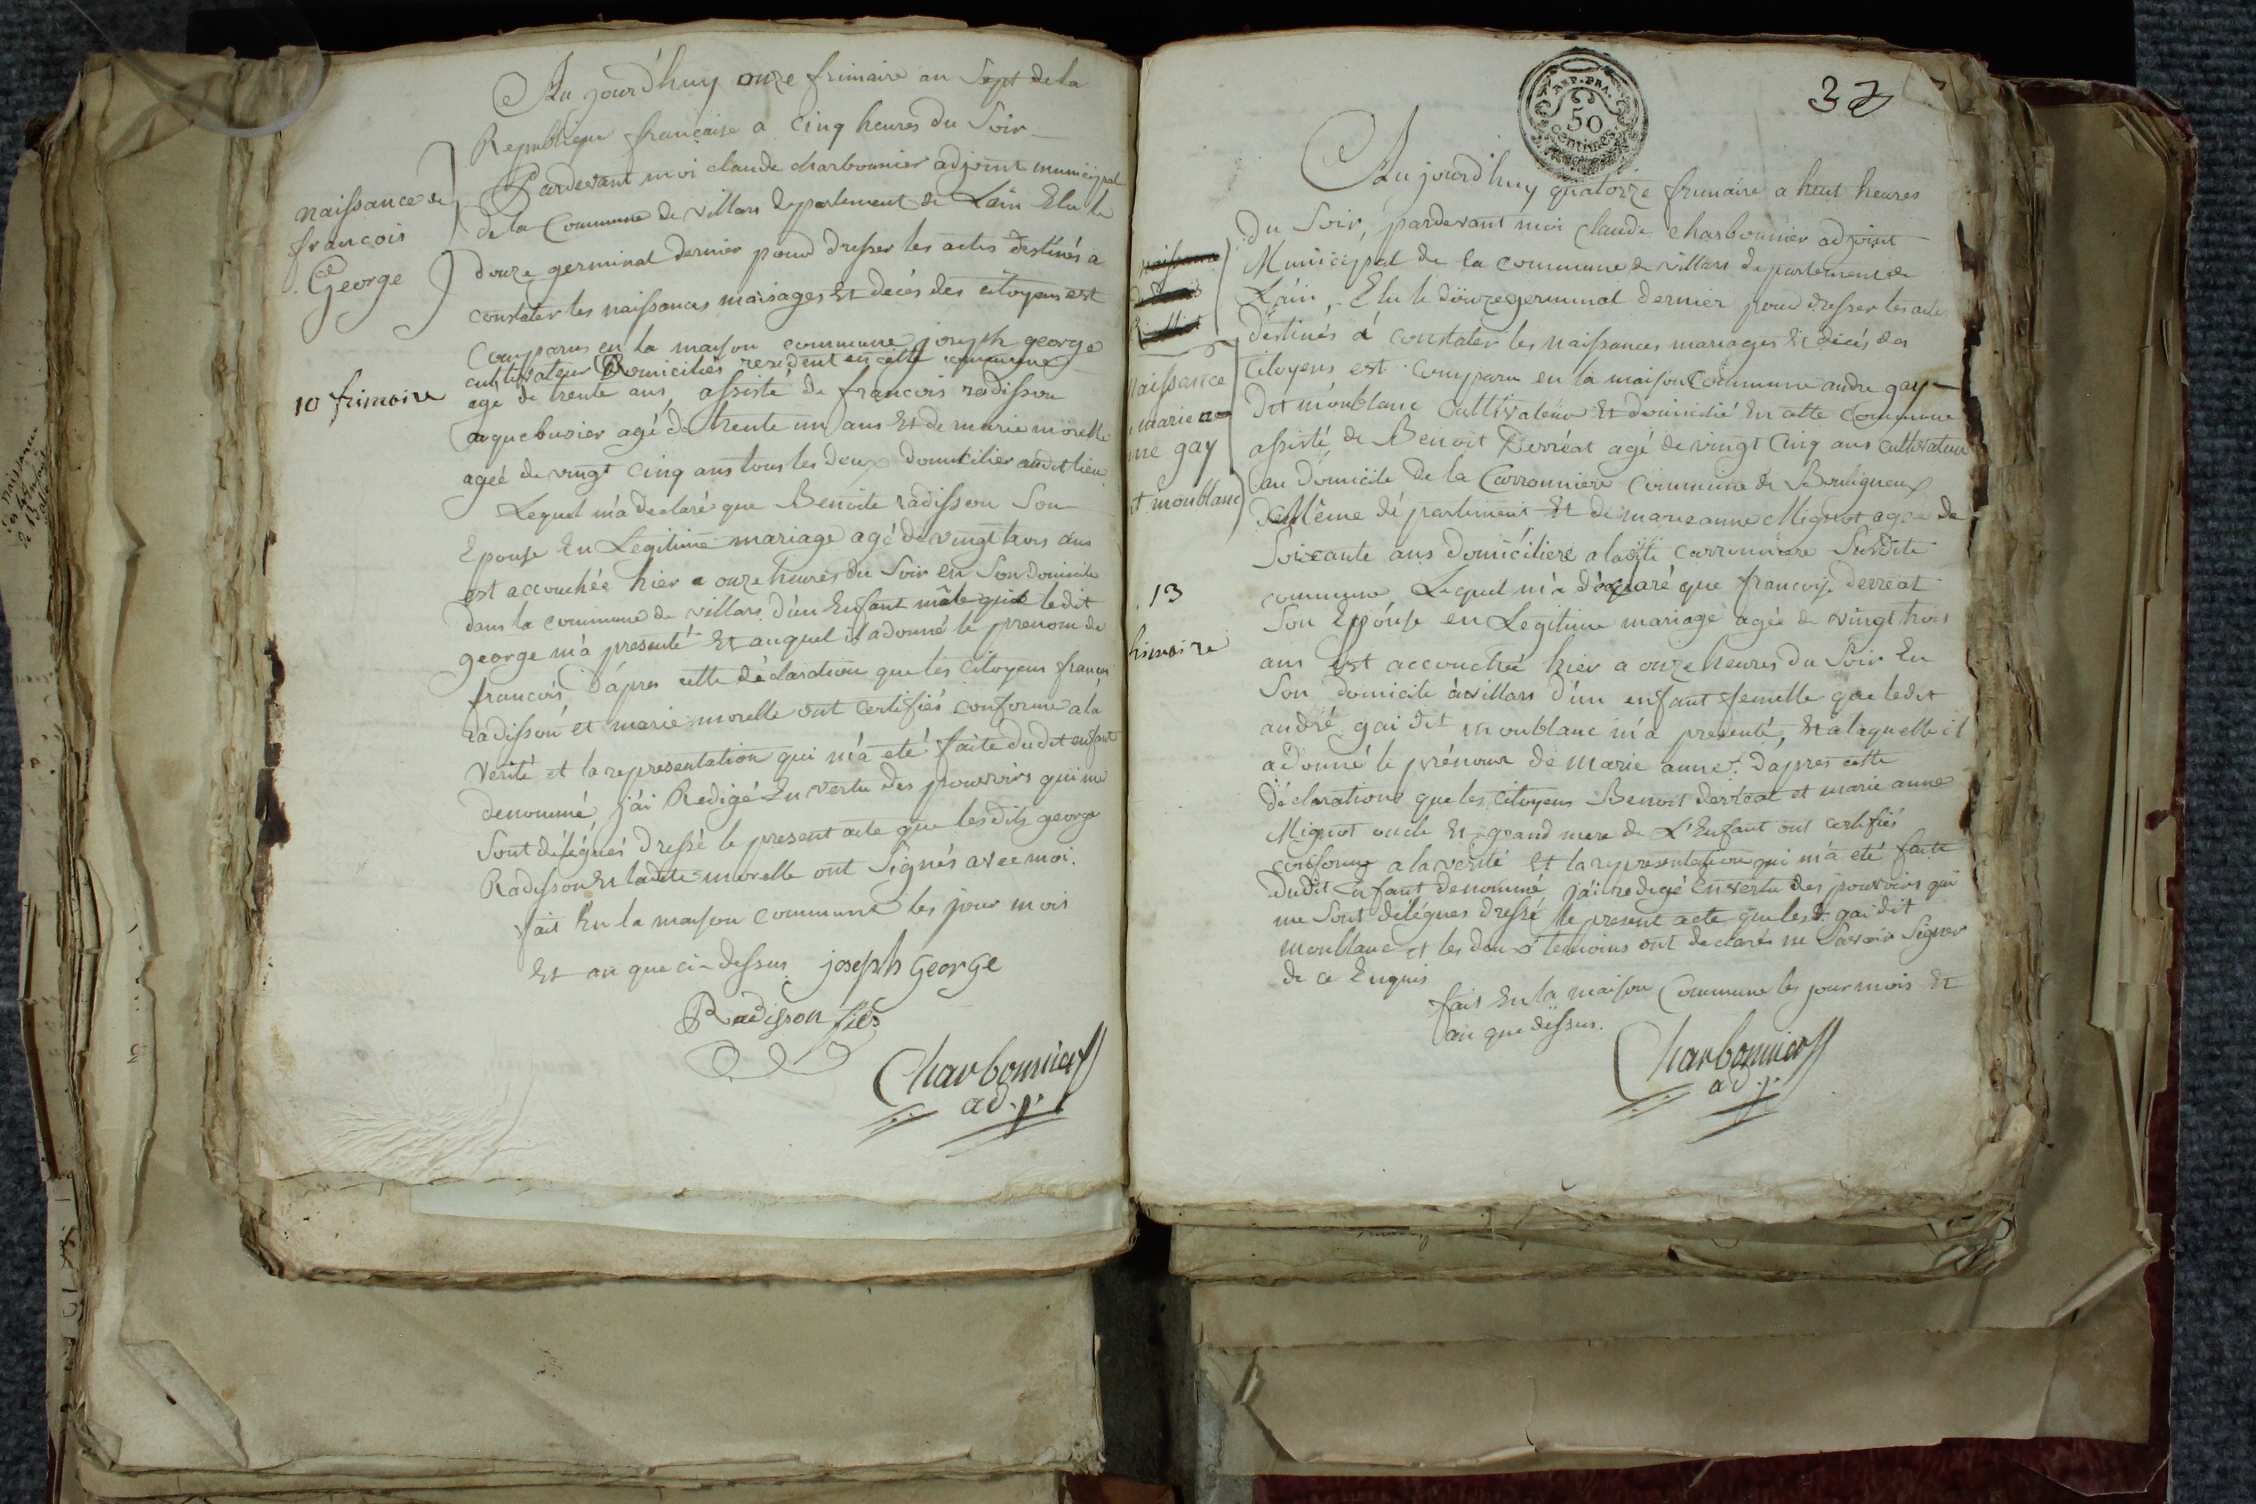 Aujourd'huy onze frimaire an Sept de la
Republique francaise a Cinq heures du Soir
Pardevant moi claude charbonnier adjoint municipal
de la Commune de villars departement de Láin Elu le
douze germinal dernier pour dresser les actes destinés a
constater les naissances mariages Et decès des citoyens est
Comparus en la maison commune joseph george
cultivateur Domiciliés resident en cette commune
agé de trente ans, assisté de francois radisson
arquebusier agé de trente un ans Et de marie morelle
ageé de vingt cinq ans tous les deux domicilier audit lieu
Lequel m'a declaré que Benoite radisson Son
Epouse En Legitime mariage agé de vingt trois ans
est accouchée hier a onze heures du Soir en Son domicile
dans la commune de villars d'un Enfant mâle que ledit
george m'a presenté Et auquel il a donné le prenom de
francois, d'apres cette déclaration que les Citoyens francois
radisson et marie morelle ont certifiés conforme a la
verité et la representation qui m'a eté faite dudit enfant
denommé, j'ai Redigé En vertu des pouvoirs qui me
Sont délégués dressé le present acte que lesdits george
Radisson Et ladite morelle ont Signés avec moi.
fait En la maison commune les jour mois
Et an que ci-dessus joseph George
Radisson fils
Charbonnier
adj.
naissance de
francois
George
10 frimaire
37
REP. FRA.
50
Centimes
Aujourd'huy quatorze frimaire a huit heures
du Soir, pardevant moi claude charbonnier adjoint
Municipal de la commune de villars departement de
Láin, Elu le douze germinal dernier pour dresser les actes
destinés á constater les naissances mariages Et decés des
Citoyens est comparu en la maison Commune andre gay
dit monblanc Cultivateur Et domicilié En cette Commune
assisté, de Benoit Derréat agé de vingt Cinq ans cultivateur
au Domicile de la Carronniere Commune de Bouligneux
Même département Et de marie anne Mignot ageé de
Soixante ans domicilieré a ladite carronniere Susdite
commune Lequel m'a déclaré que françoise derreat
Son Epouse en Legitime mariage agée de vingt trois
ans Est accouchée hier a onze heures du Soir En
Son domicile á villars d'un enfant femelle que ledit
andré gai dit monblanc m'a presenté, Et a laquelle il
a donné le prénom de marie anne. d'apres cette
déclaration que les Citoyens Benoit derreat et marie anne
Mignot oncle Et grand mere de L'Enfant ont certifiés
conforme a la verité Et la representation qui m'a eté faite
dudit Enfant denommé j'ai redigé En vertu des pouvoirs qui
me Sont délégues dressé le present acte que led. gai dit
monblanc et les deux temoins ont declarés ne Savoir Signer
de ce Enquis
fait En la maison Commune les jour mois Et
an que dessus.
Charbonnier
adj.
naissance
marie an
ne gay
dt monblanc
13
frimaire